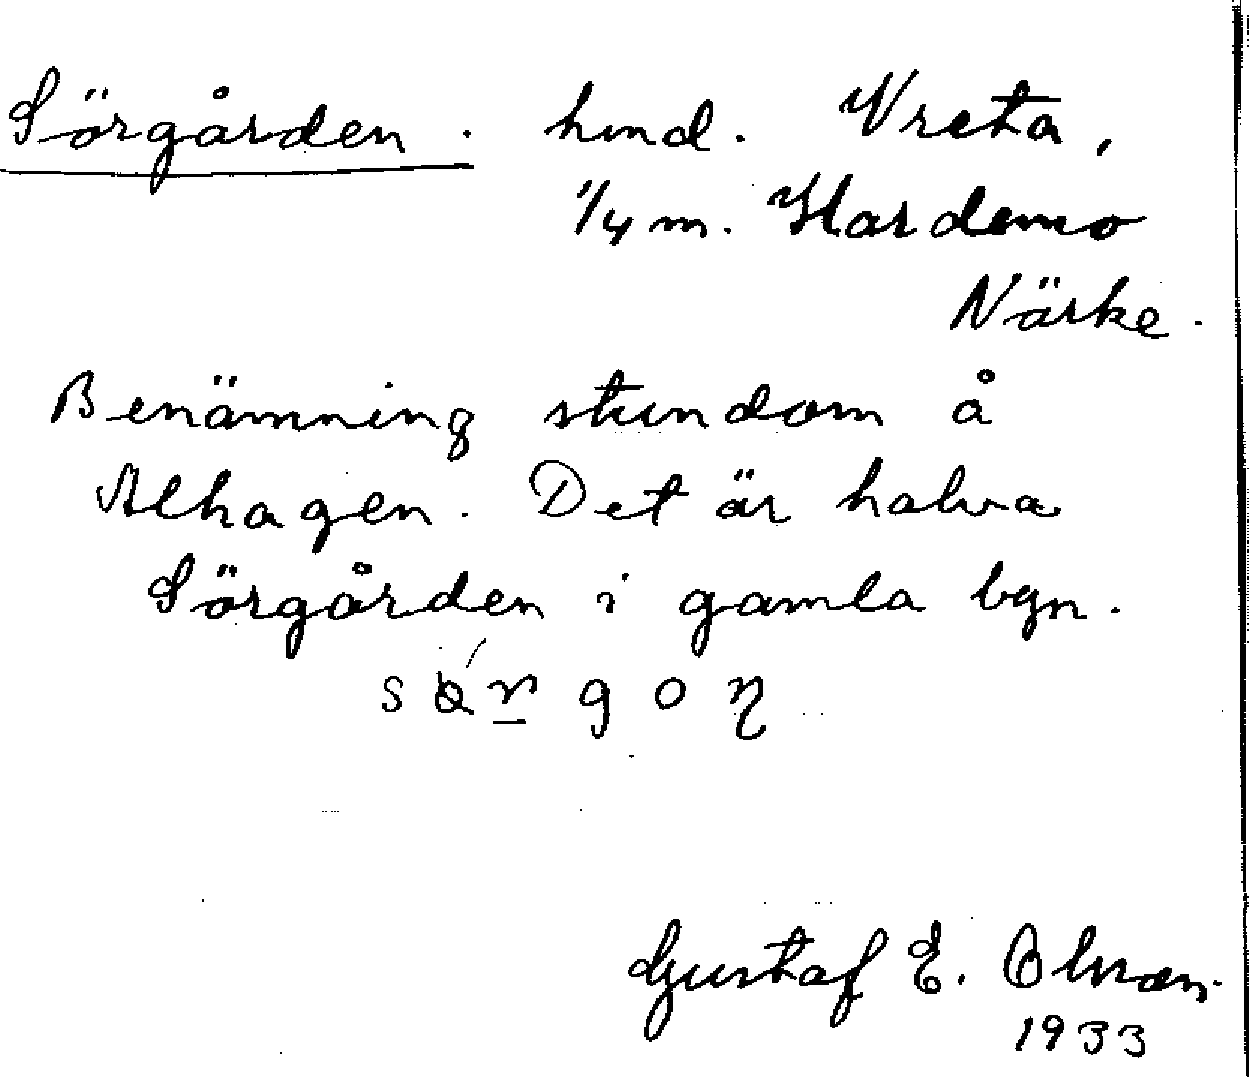 Sörgården. hmd. Vreta,
1/4 m. Hardemo
Närke.
Benämning stundom å
Alhagen. Det är halva
Sörgården i gamla byn.
Gustaf E. Olsson.
1933